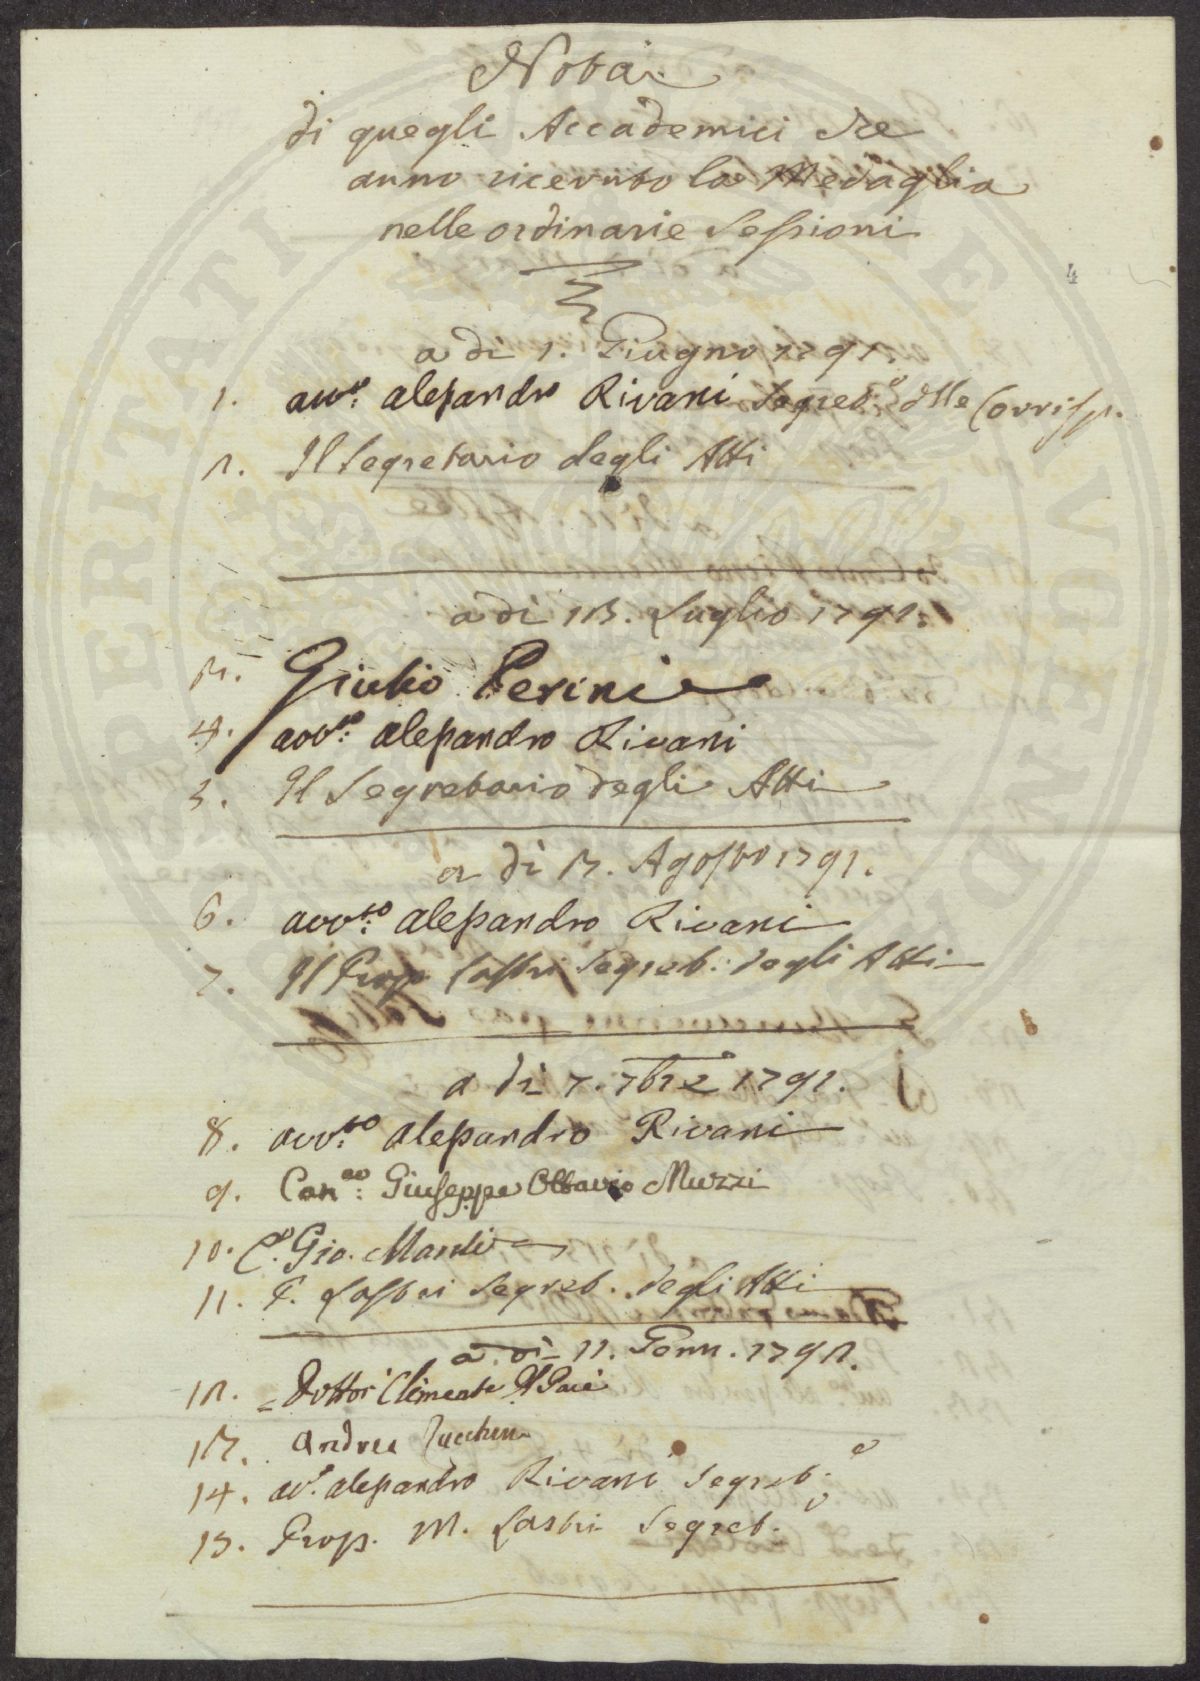 Nota
di quegli Accademici che
anno ricevuto la Medaglia
nelle ordinarie Sessioni
4
a dì 1. Giugno 1791.
1. avv.to Alessandro Rivani Segret.o delle Corrisp.
2. Il Segretario degli Atti
a dì 13. Luglio 1791.
3. Giulio Perini
4. avv.to Alessandro Rivani
5. Il Segretario degli Atti
a dì 3. Agosto 1791.
6. avv.to Alessandro Rivani
7. Il Prop. Lastri Segret. degli Atti
a dì 7. 7bre 1791.
8. avv.to Alessandro Rivani
9. Can.co Giuseppe Ottavio Muzzi
10. C.o Gio. Mariti
11. P. Lastri Segret. degli Atti
a dì 11. Genn. 1792.
12. Dottor Clemente
13. Andrea Zucchini
14. av.o Alessandro Rivani Segret.o
15. Prop. M. Lastri Segret.o
PROSPERITATI PUBLICAE AUGENDAE